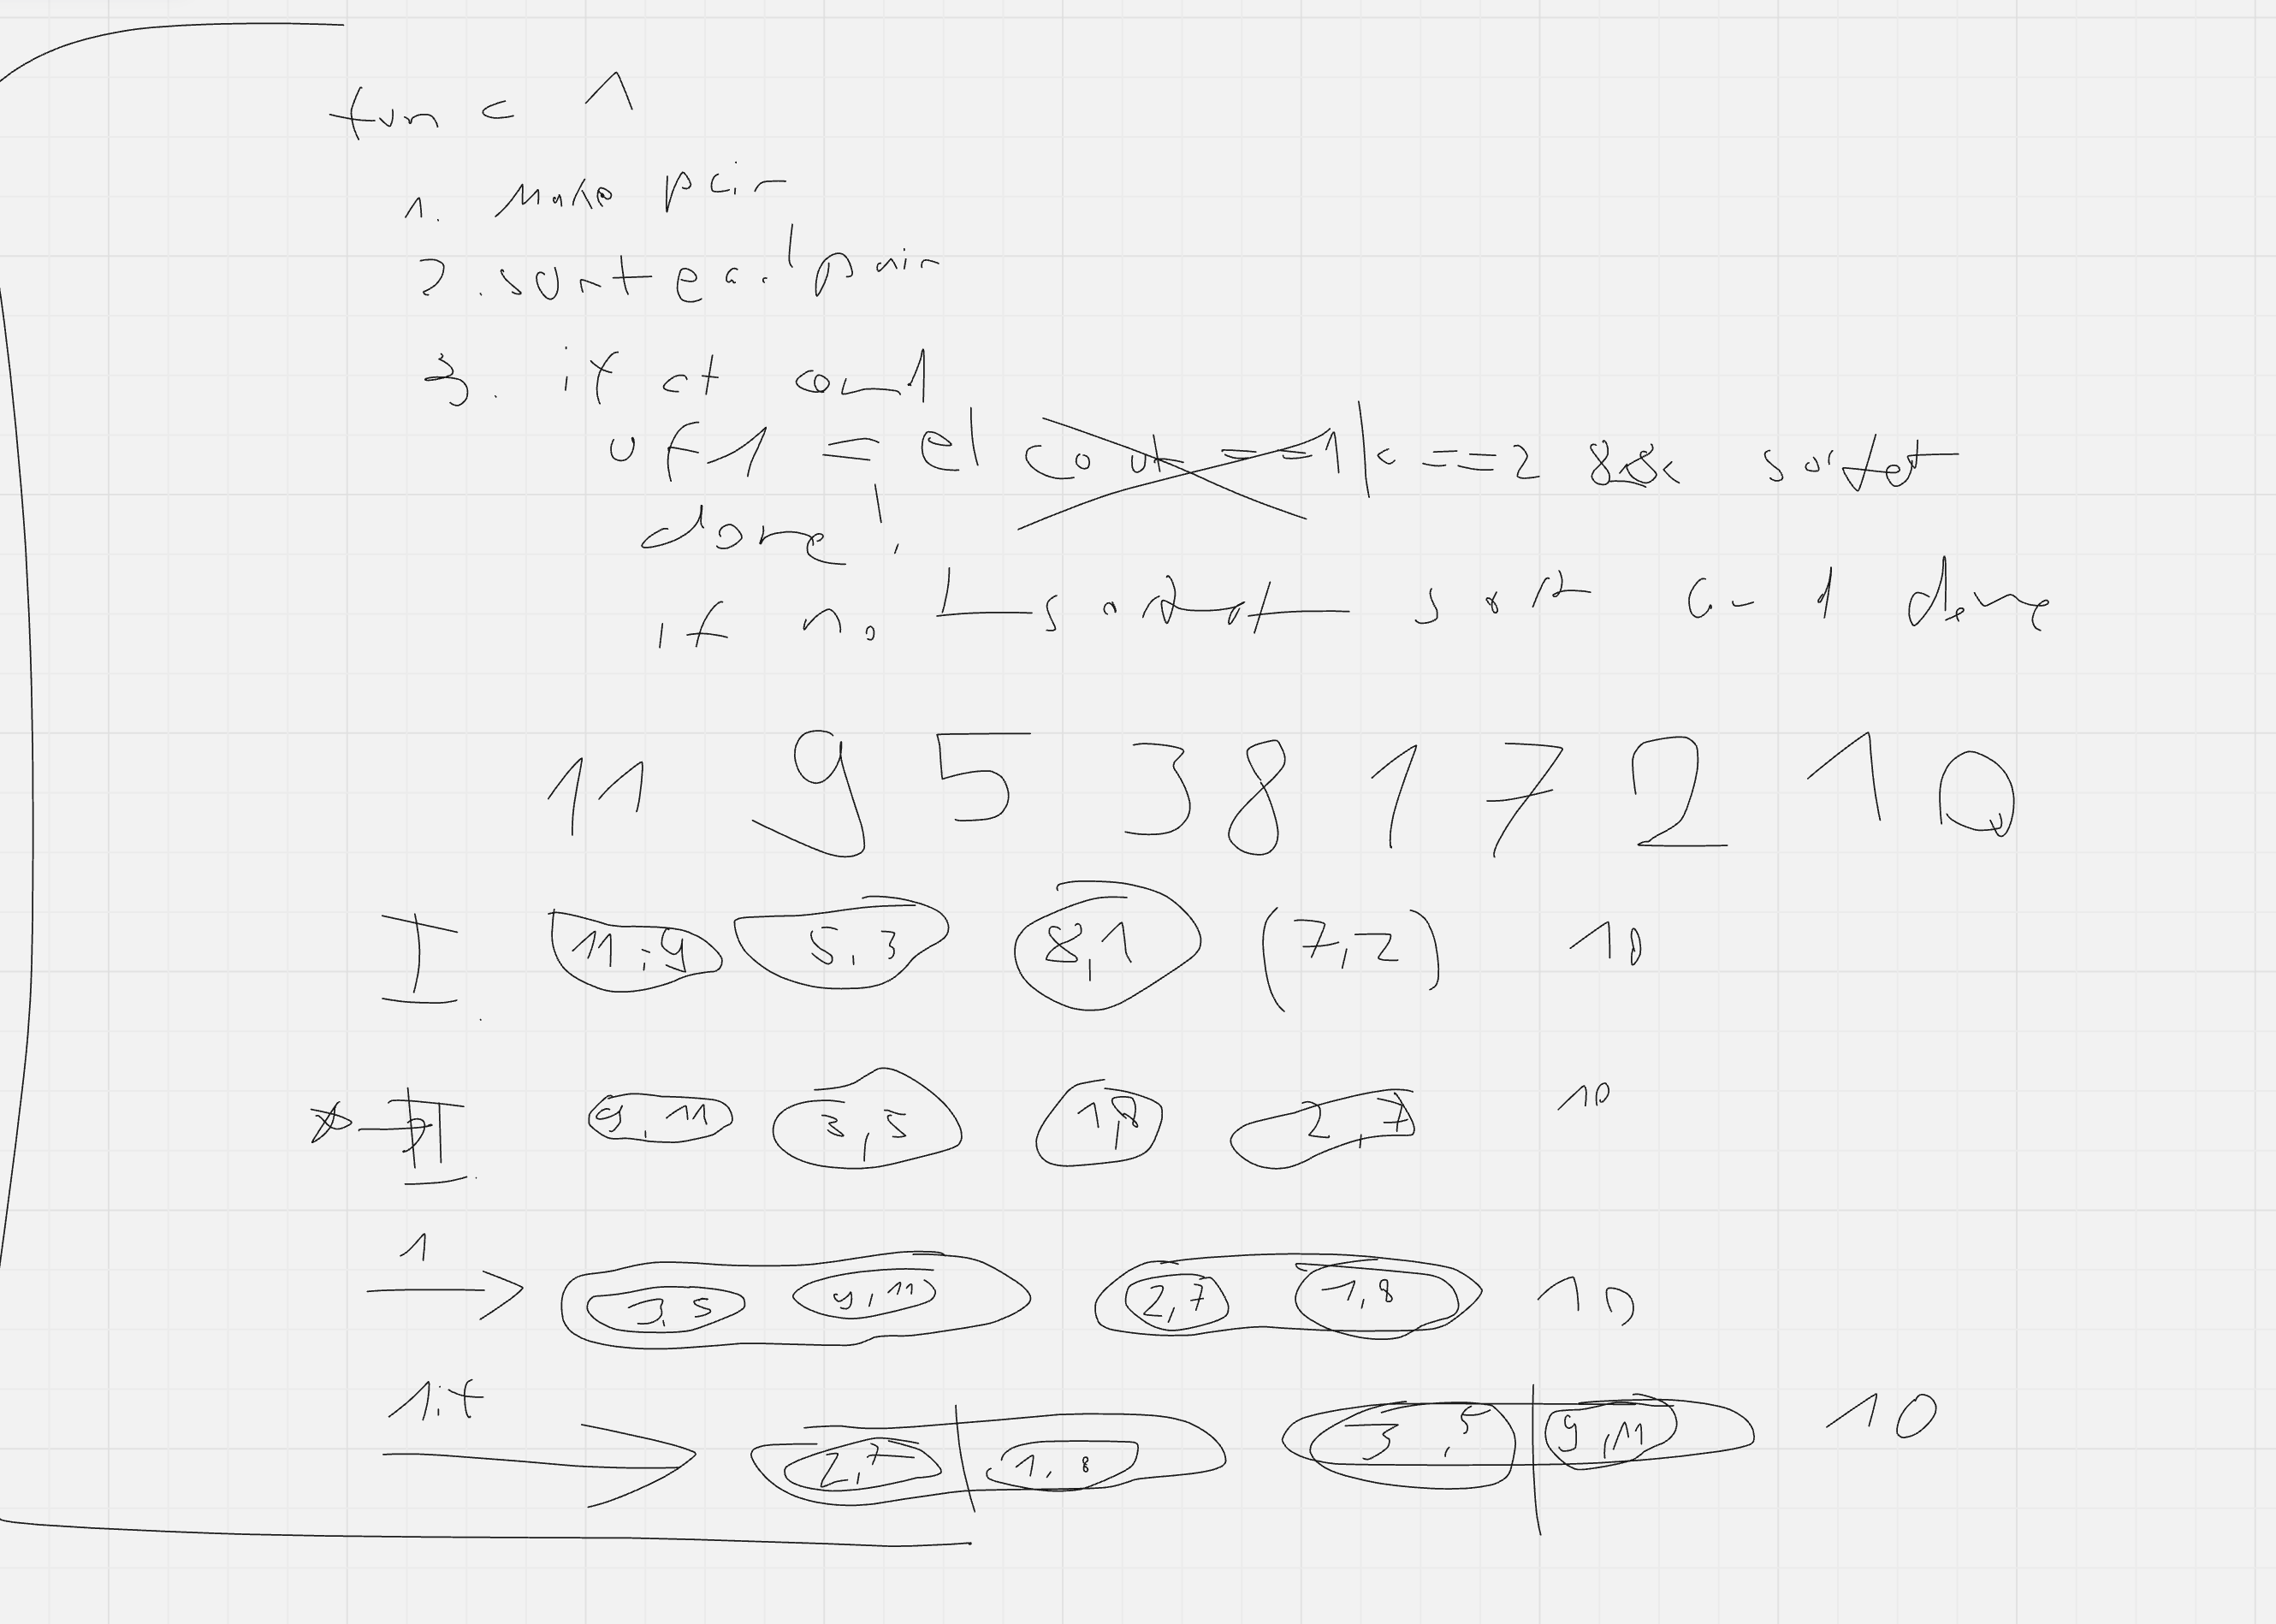 func 1
1. Make pair
2. sort ea. pair
3. if at
of 1 = el cout == 1 | c == 2 && sortet
done!
if no sort done
11 9 5 3 8 1 7 2 10
I. 11,9 5,3 8,1 (7,2) 10
II. 9,11 3,5 1,8 2,7 10
1 3,5 9,11 2,7 1,8 10
1.t 2,7 | 1,8 3,5 | 9,11 10